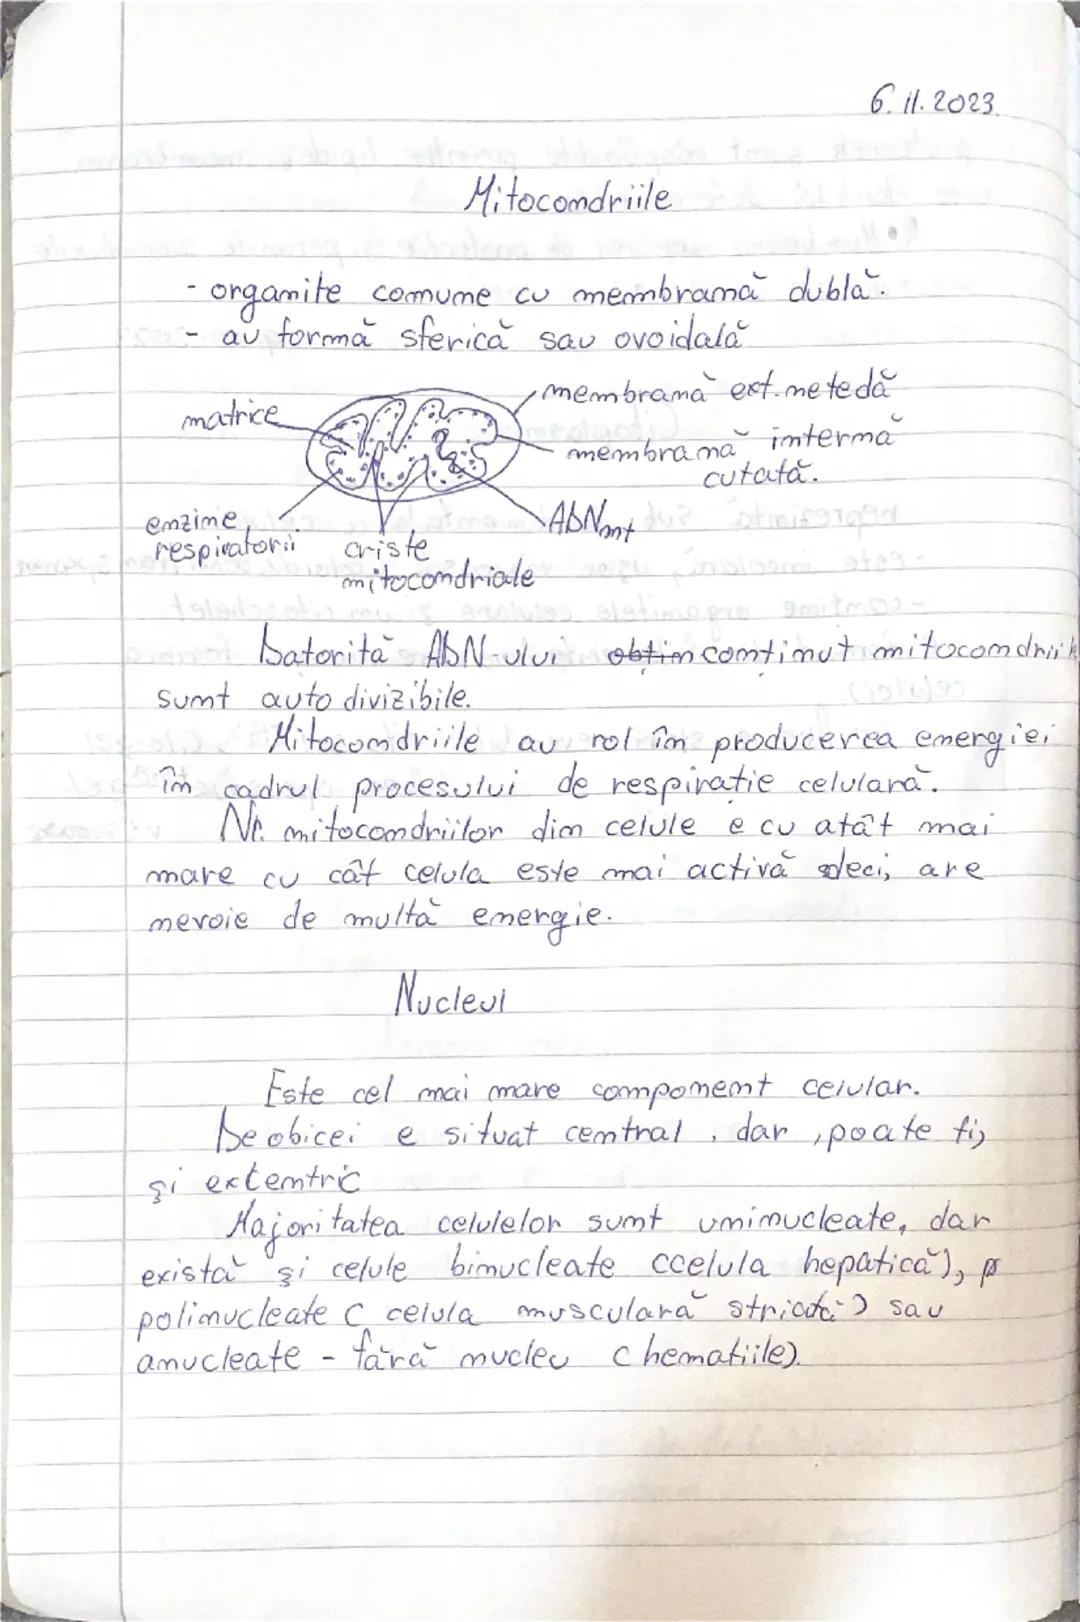 6. 11. 2023.
Mitocondriile
- organite comune cu membrană dublă.
- au formă sferică sau ovoidală
membrană ext. netedă
matrice
membrană internă
cutată.
ADNmt
enzime
respiratorii
criste
mitocondriale
Datorită ADN-ului obtin continut mitocondriile
sunt auto divizibile.
Mitocondriile au rol în producerea energiei
în cadrul procesului de respiratie celulară.
Nr. mitocondriilor din celule e cu atât mai
mare cu cât celula este mai activă deci, are
nevoie de multă energie.
Nucleul
Este cel mai mare component celular.
De obicei e situat central, dar, poate fi,
și extentric
Majoritatea celulelor sunt uninucleate, dar
există și celule binucleate (celula hepatică), p
polinucleate (celula musculară striată) sau
anucleate - fără nucleu (hematiile).